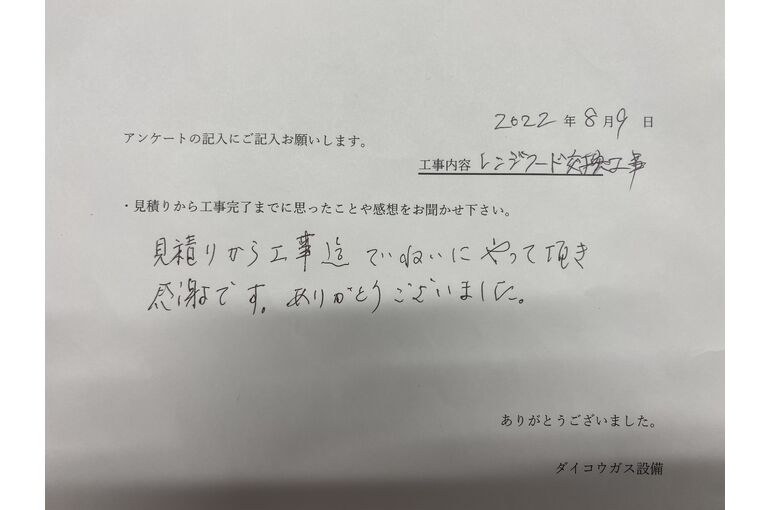 2022年8月9日
アンケートの記入にご記入お願いします。
工事内容 レンジフード交換工事
・見積りから工事完了までに思ったことや感想をお聞かせ下さい。
見積りから工事迄ていねいにやって頂き
感謝です。ありがとうございました。
ありがとうございました。
ダイコウガス設備